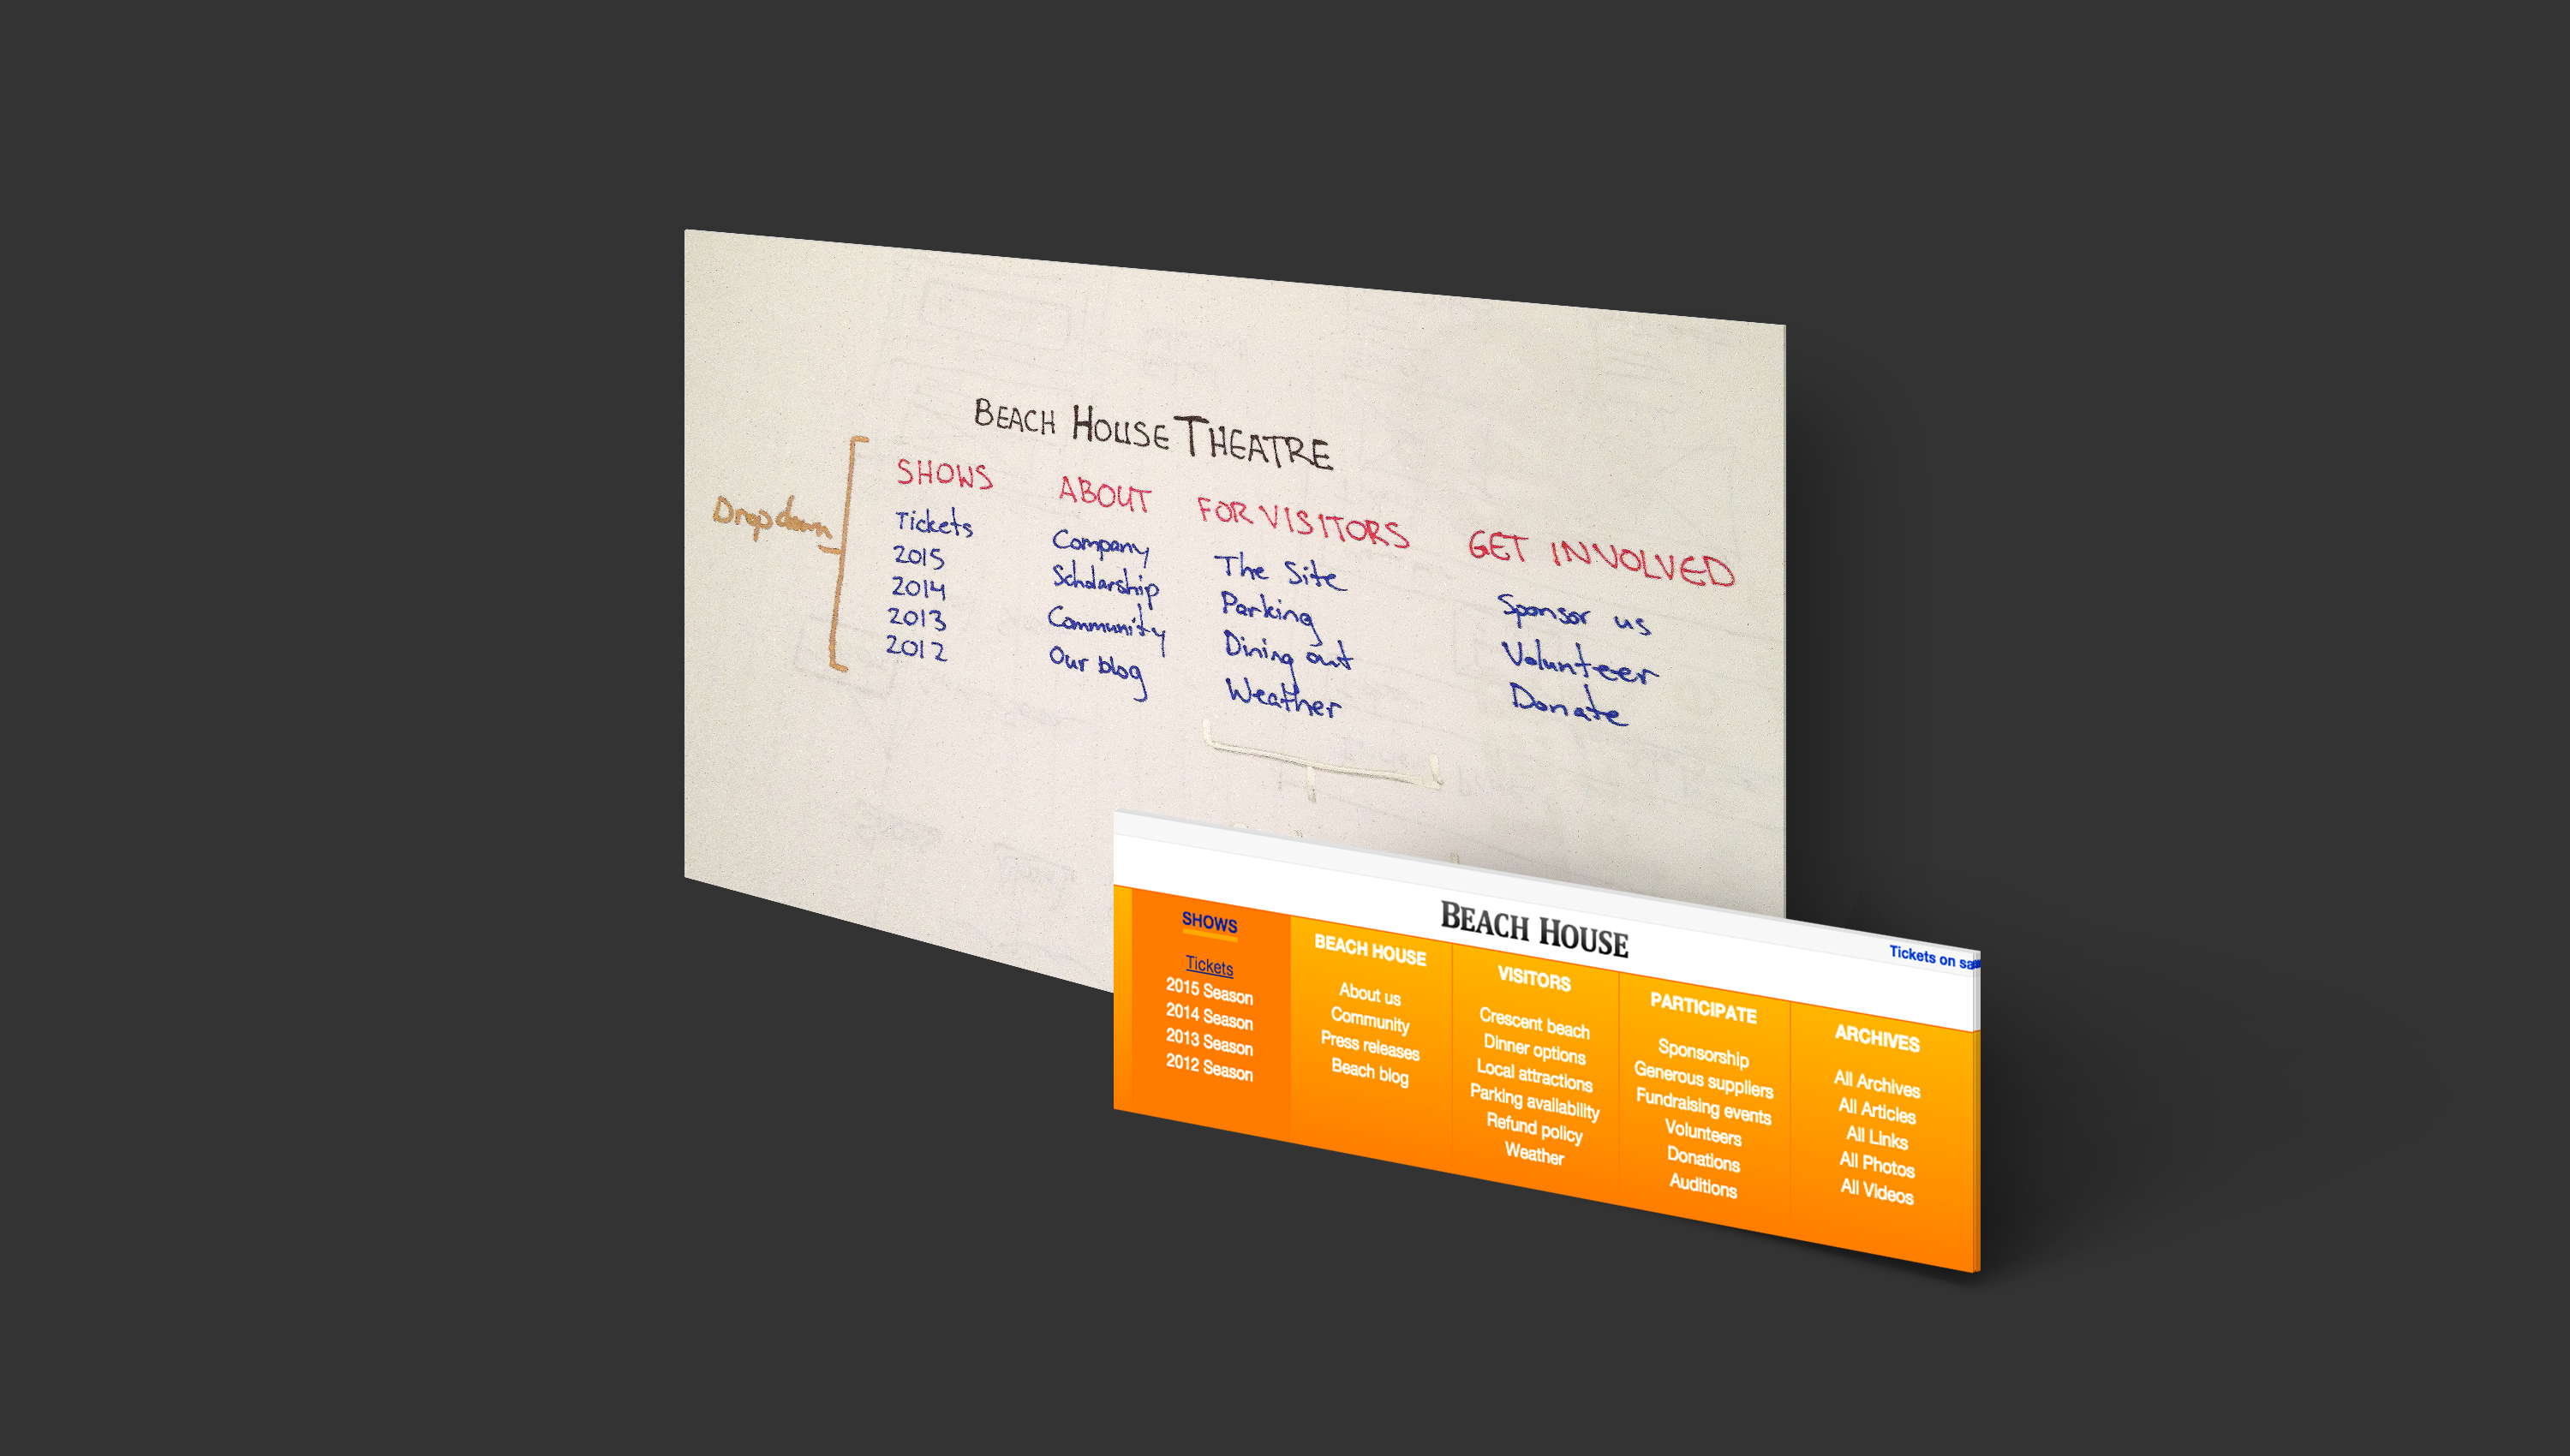 BEACH HOUSE THEATRE
Dropdown
SHOWS
Tickets
2015
2014
2013
2012
ABOUT
Company
Scholarship
Community
Our blog
FOR VISITORS
The Site
Parking
Dining out
Weather
GET INVOLVED
Sponsor us
Volunteer
Donate
BEACH HOUSE
Tickets on
SHOWS
Tickets
2015 Season
2014 Season
2013 Season
2012 Season
BEACH HOUSE
About us
Community
Press releases
Beach blog
VISITORS
Crescent beach
Dinner options
Local attractions
Parking availability
Refund policy
Weather
PARTICIPATE
Sponsorship
Generous suppliers
Fundraising events
Volunteers
Donations
Auditions
ARCHIVES
All Archives
All Articles
All Links
All Photos
All Videos